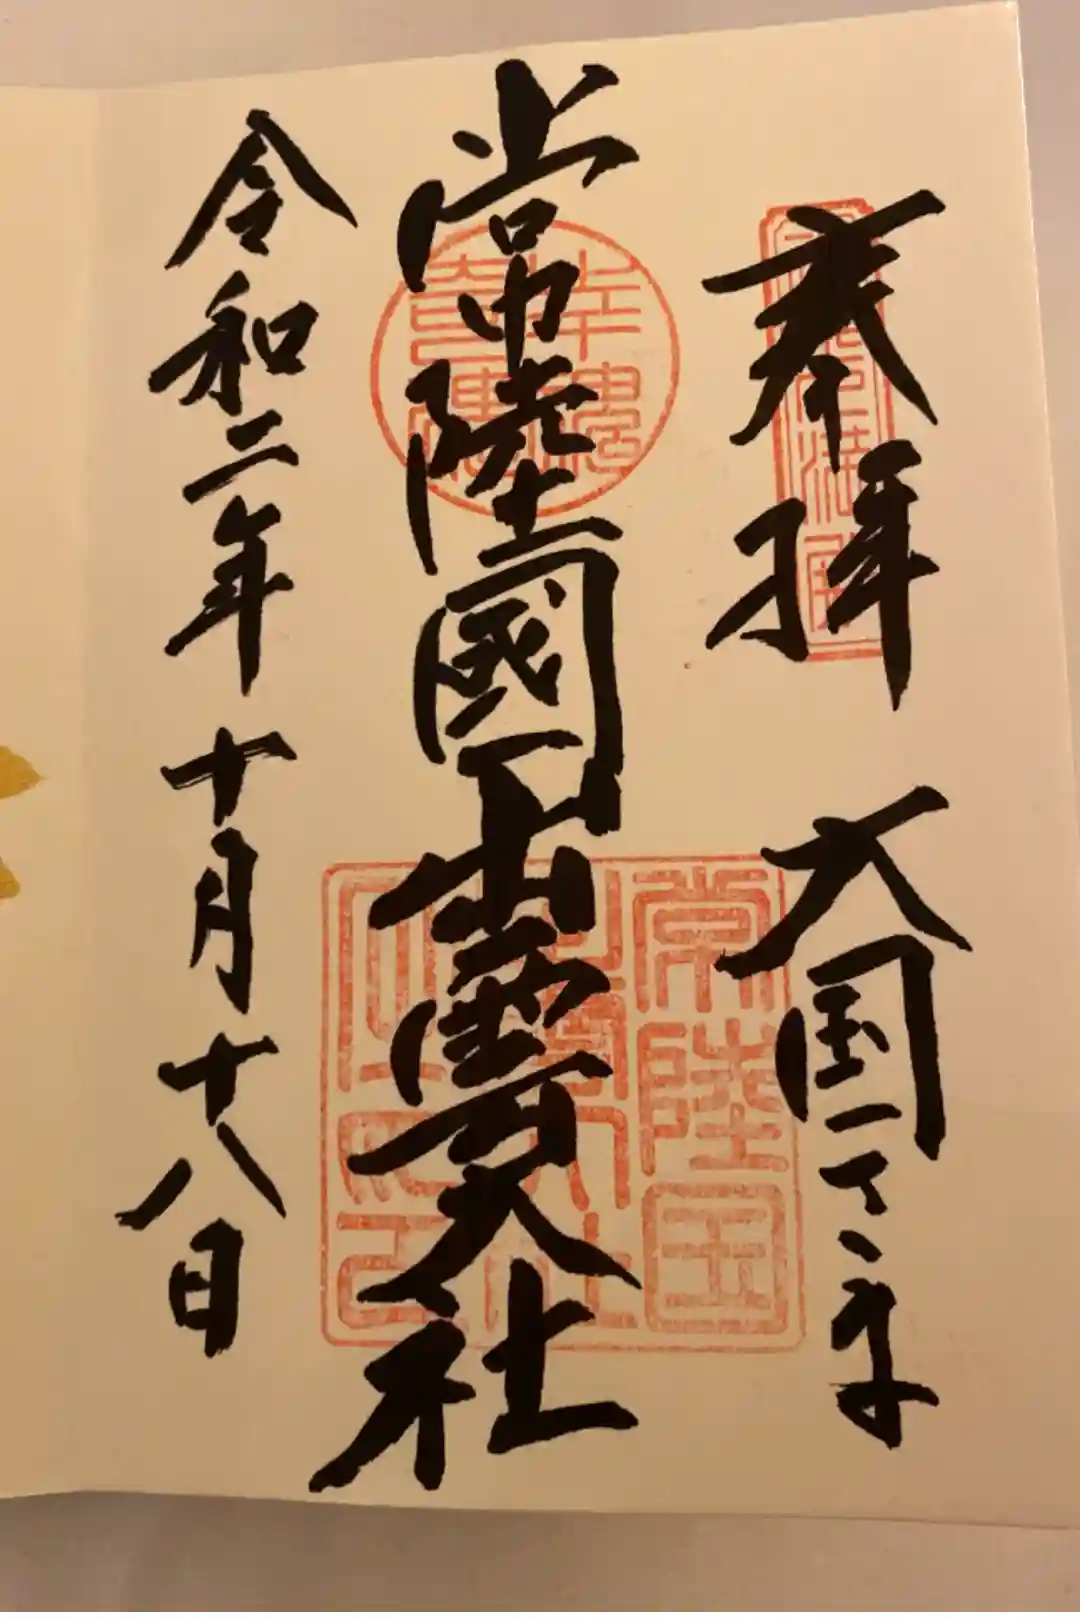 奉拝 大国さま
常陸國出雲大社
令和二年十月十八日
常陸国